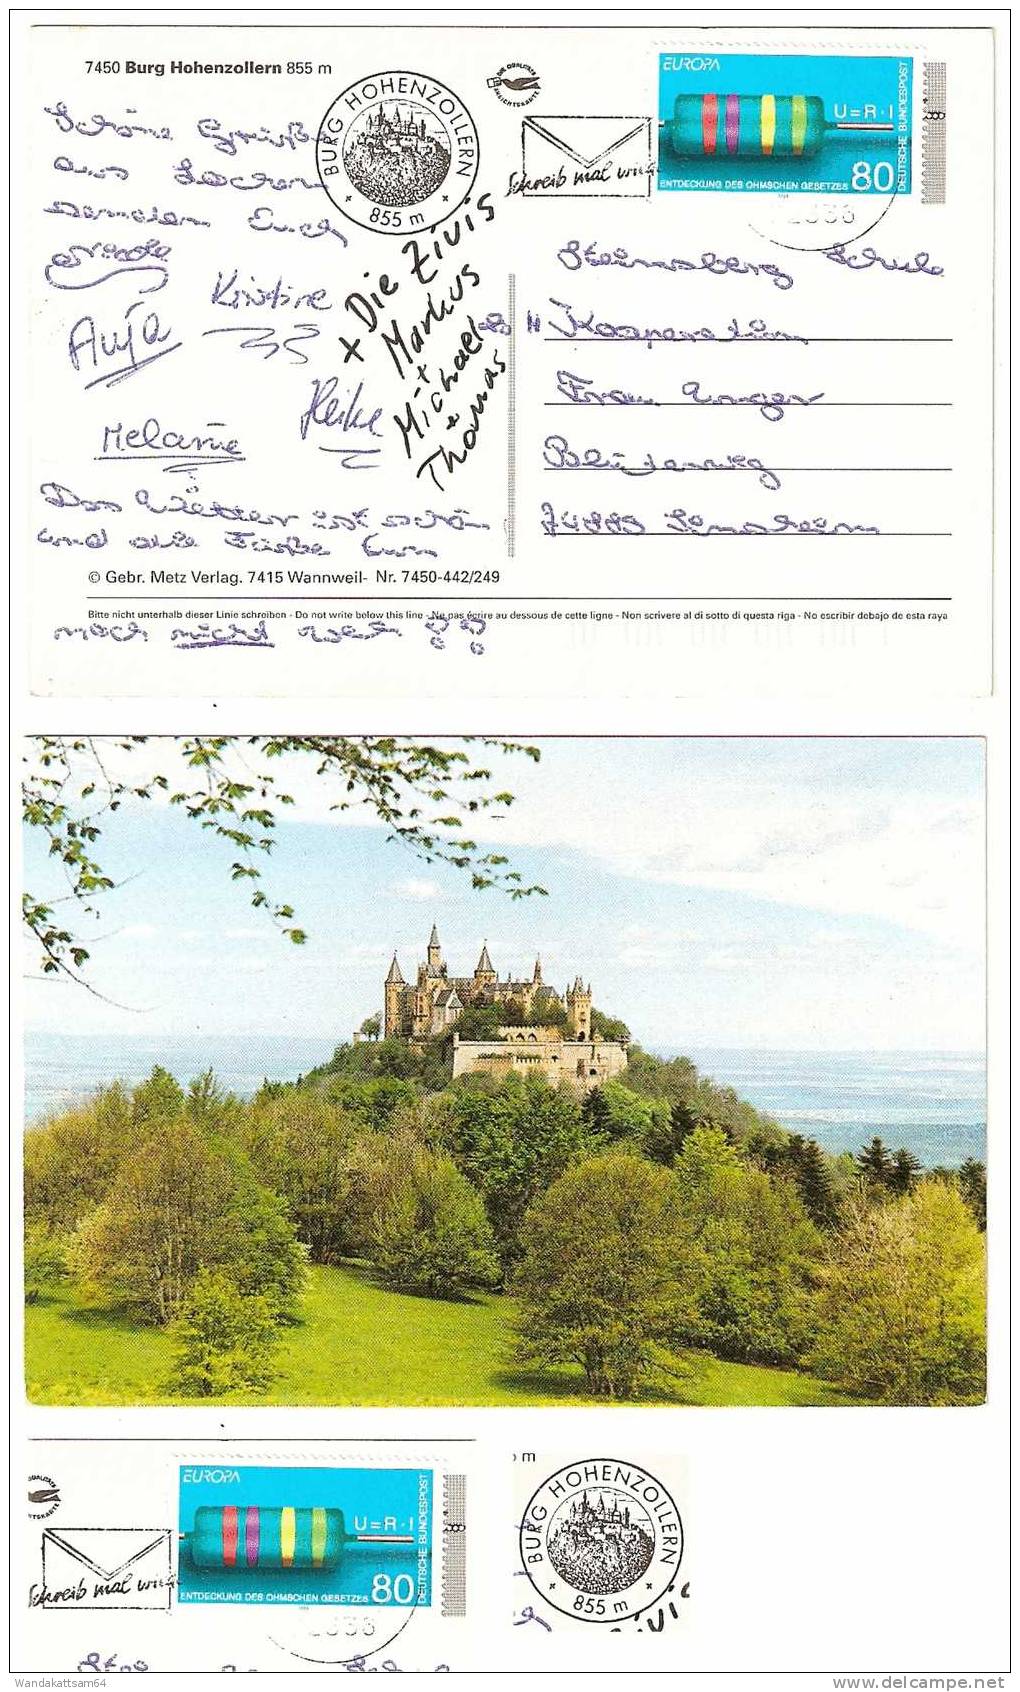 7450 Burg Hohenzollern 855 m
BURG HOHENZOLLERN
855 m
Schreib mal wieder
EUROPA
U=R·I
ENTDECKUNG DES OHMSCHEN GESETZES 80
DEUTSCHE BUNDESPOST
Schöne Grüße
aus
senden Euch
Nicole
Kristine
Anja
Heike
Melanie
+ Die Zivis
Markus
+
Michael
+
Thomas
Das Wetter ist schön
und die Füße tun
noch nicht weh !!
Steinsberg Schule
Kooperation
Frau Unger
Blütenweg
74889 Sinsheim
© Gebr. Metz Verlag. 7415 Wannweil- Nr. 7450-442/249
Bitte nicht unterhalb dieser Linie schreiben - Do not write below this line - Ne pas écrire au dessous de cette ligne - Non scrivere al di sotto di questa riga - No escribir debajo de esta raya
EUROPA
U=R·I
ENTDECKUNG DES OHMSCHEN GESETZES 80
DEUTSCHE BUNDESPOST
Schreib mal
m
BURG HOHENZOLLERN
855 m
Wandakattsam64
delcampe.net